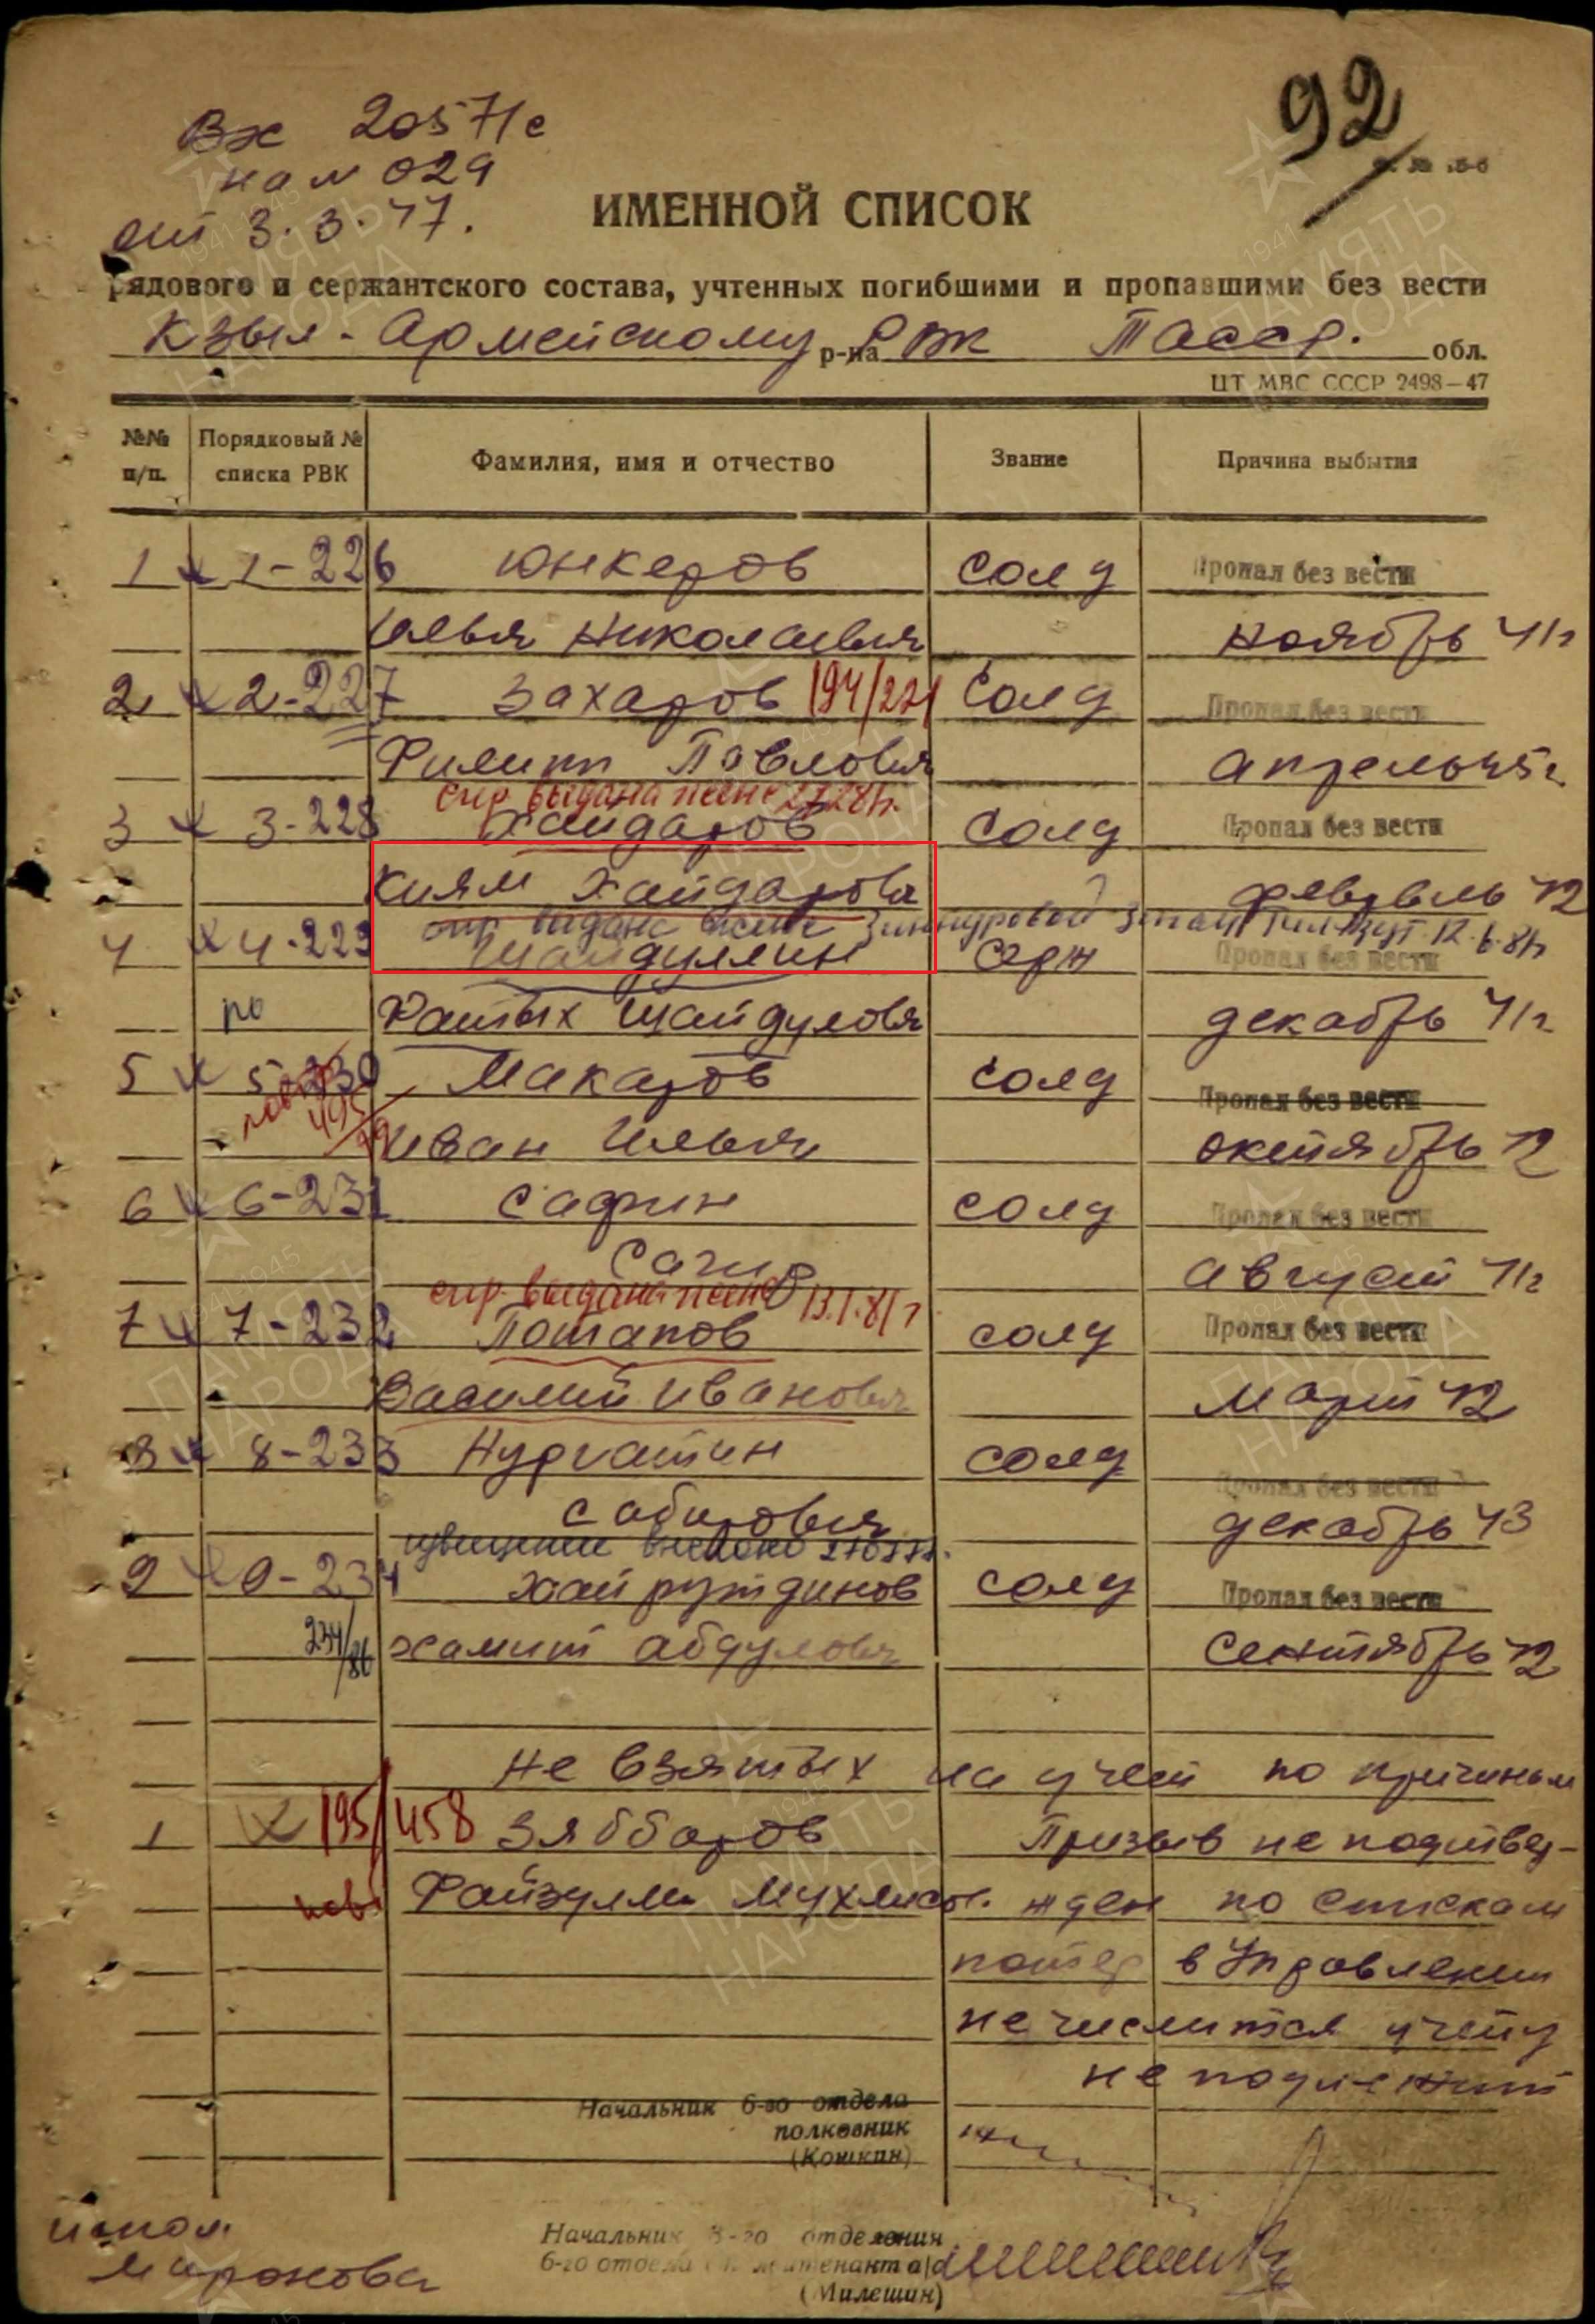 Вх 20571с
от 3.3.47.
92
ИМЕННОЙ СПИСОК
рядового и сержантского состава, учтенных погибшими и пропавшими без вести
Кзыл-Армейскому р-на РВК Тасср. обл.
ЦТ МВС СССР 2498—47
№№ п/п. Порядковый № списка РВК Фамилия, имя и отчество Звание Причина выбытия
1 1-226 Юнкеров солд Пропал без вести
Илья Николаевич ноябрь 41г
2 2-227 Захаров 194/221 солд Пропал без вести
Филипп Павлович апрель 45г
спр. выдана жене
3 3-228 Хайдаров солд Пропал без вести
Киям Хайдаров февраль 42
спр выдана жене
4 4-229 Шайдуллин сарж Пропал без вести
Фатых Шайдулович декабрь 41г
5 5-230 Макаров солд Пропал без вести
Иван Ильич октябрь 42
6 6-231 Сафин солд Пропал без вести
Сагир август 41г
спр. выдана жене 13.1.81г
7 7-232 Потапов солд Пропал без вести
Василий Иванович март 42
8 8-233 Нургатин солд Пропал без вести
Сабирович декабрь 43
извещение
9 9-234 Хайрутдинов солд Пропал без вести
234/86 Хамит Абдулович сентябрь 42
Не взятых на учет по причинам
1 195/458 Зяббаров Призыв не подтвер-
Файзулла Мухлисов. жден по спискам
потер в Управлении
не числится учету
не подлежит
Начальник 6-го отдела
полковник
(Кошкин)
Начальник 3-го отделения
6-го отдела лейтенант а/с
(Милешин)
испол
Миронова